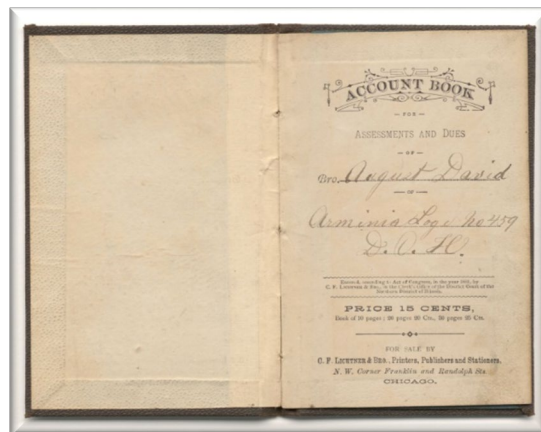 ACCOUNT BOOK
— FOR —
ASSESSMENTS AND DUES
— OF —
Bro. August David
— OF —
Arminia Loge No 459
D. O. H.
Entered according to Act of Congress, in the year by
C. F. LICHTNER & Bro., in the Clerk's Office of the District Court of the
Northern District of Illinois.
PRICE 15 CENTS,
Book of pages; pages Cts., pages Cts.
FOR SALE BY
C. F. LICHTNER & BRO., Printers, Publishers and Stationers,
N. W. Corner Franklin and Randolph Sts
CHICAGO.